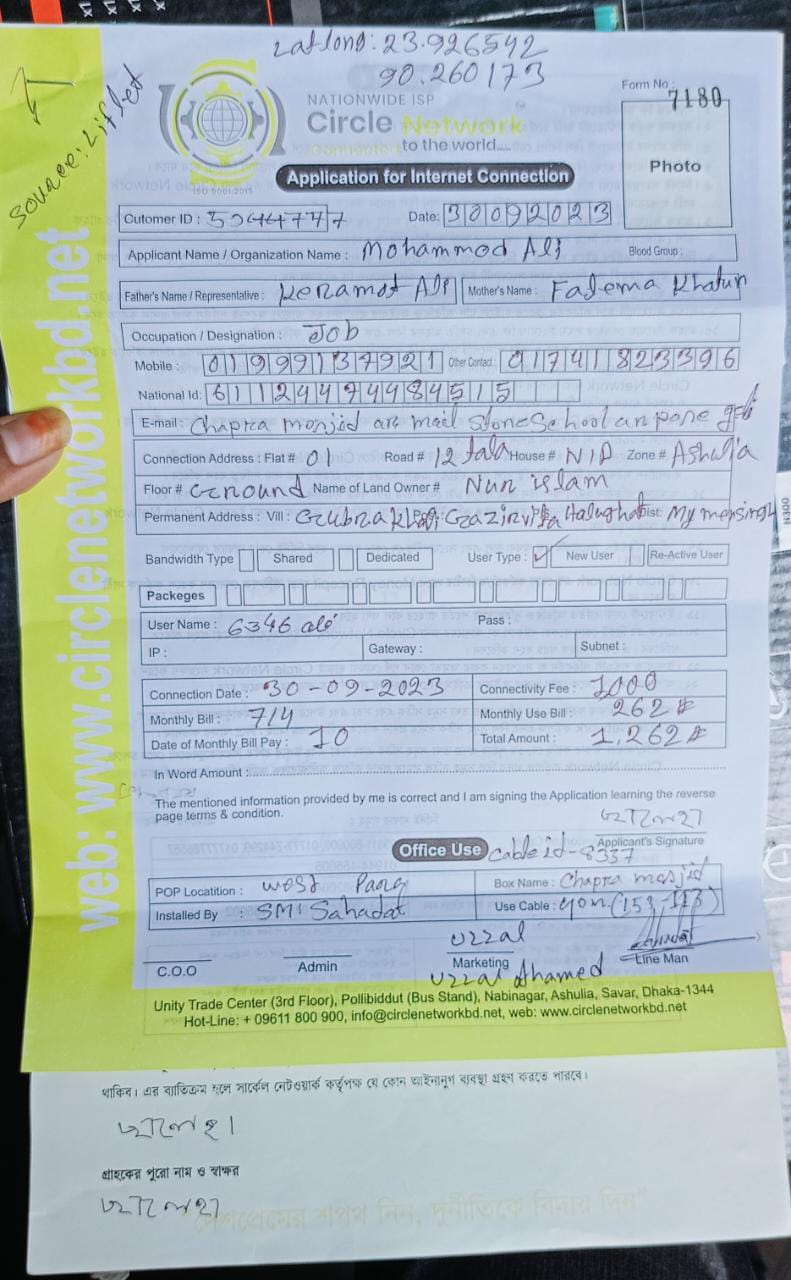 Latlong: 23.926542
90.260173
Source: Liflet
Form No :
7180
NATIONWIDE ISP
Circle Network
Connecting to the world....
ISO 9001:2015
Photo
Application for Internet Connection
Cutomer ID : 5044777 Date: 30092023
Applicant Name / Organization Name : Mohammod Ali Blood Group :
Father's Name / Representative : Keramot Ali Mother's Name : Fatema Khatun
Occupation / Designation : Job
Mobile : 01999137921 Other Contact : 01741823396
National Id: 61124474484515
E-mail : Chapra monjid ar mail Stone School an pase goli
Connection Address : Flat # 01 Road # 12 tala House # N/A Zone # Ashulia
Floor # Ground Name of Land Owner # Nur islam
Permanent Address : Vill : Gubrakhali Gazirvita Haluaghat Dist: Mymensingh
Bandwidth Type Shared Dedicated User Type : ✓ New User Re-Active User
Packeges
User Name : 6346 ali Pass :
IP : Gateway : Subnet :
Connection Date : 30-09-2023 Connectivity Fee : 1000
Monthly Bill : 714 Monthly Use Bill : 262
Date of Monthly Bill Pay : 10 Total Amount : 1,262
In Word Amount :
The mentioned information provided by me is correct and I am signing the Application learning the reverse
page terms & condition.
Applicant's Signature
Office Use Cable id-8337
POP Locatition : West Parg Box Name : Chapra masjid
Installed By : SM: Sahadat Use Cable : 40m (153-113)
Uzzal
C.O.O Admin Marketing Line Man
Uzzal Ahamed
Unity Trade Center (3rd Floor), Pollibiddut (Bus Stand), Nabinagar, Ashulia, Savar, Dhaka-1344
Hot-Line: + 09611 800 900, info@circlenetworkbd.net, web: www.circlenetworkbd.net
web: www.circlenetworkbd.net
থাকিব। এর ব্যতিক্রম হলে সার্কেল নেটওয়ার্ক কর্তৃপক্ষ যে কোন আইনানুগ ব্যবস্থা গ্রহণ করতে পারবে।
গ্রাহকের পুরো নাম ও স্বাক্ষর
"দেশপ্রেমের শপথ নিন, দুর্নীতিকে বিদায় দিন"